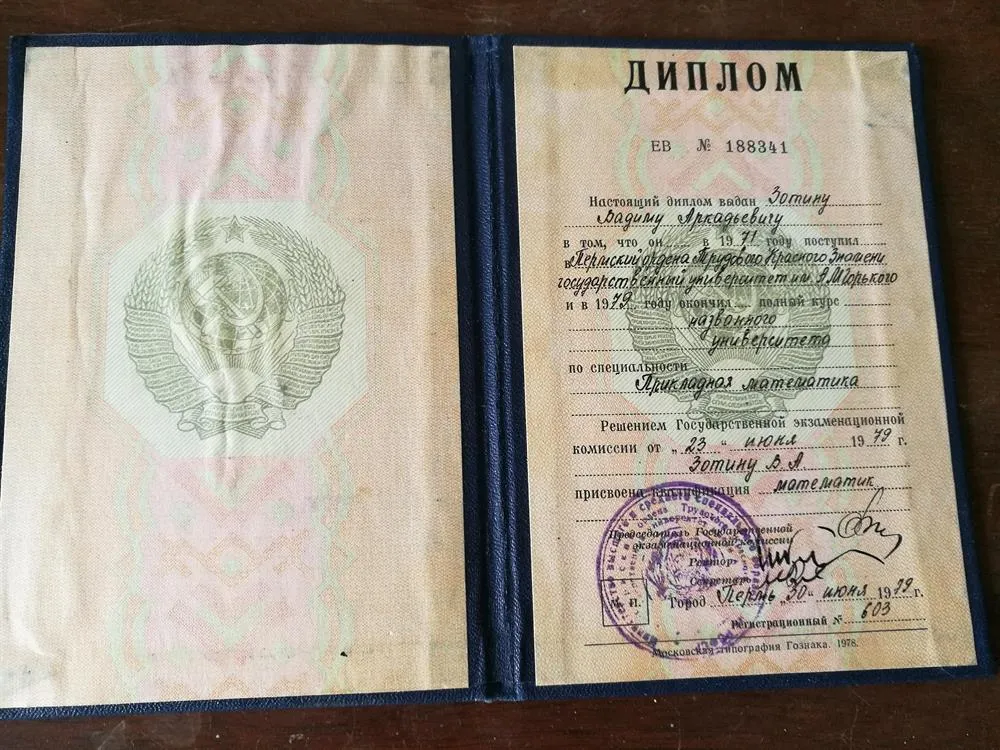 ДИПЛОМ
ЕВ № 188341
Настоящий диплом выдан Зотину
Вадиму Аркадьевичу
в том, что он в 1971 году поступил
в Пермский ордена Трудового Красного Знамени
государственный университет им. А.М.Горького
и в 1979 году окончил полный курс
названного
университета
по специальности
Прикладная математика
Решением Государственной экзаменационной
комиссии от „23“ июня 1979 г.
Зотину В.А.
присвоена квалификация математик
Председатель Государственной
экзаменационной комиссии
Ректор
Секретарь
М. П.
Город Пермь „30“ июня 1979 г.
Регистрационный № 603
Московская типография Гознака. 1978.